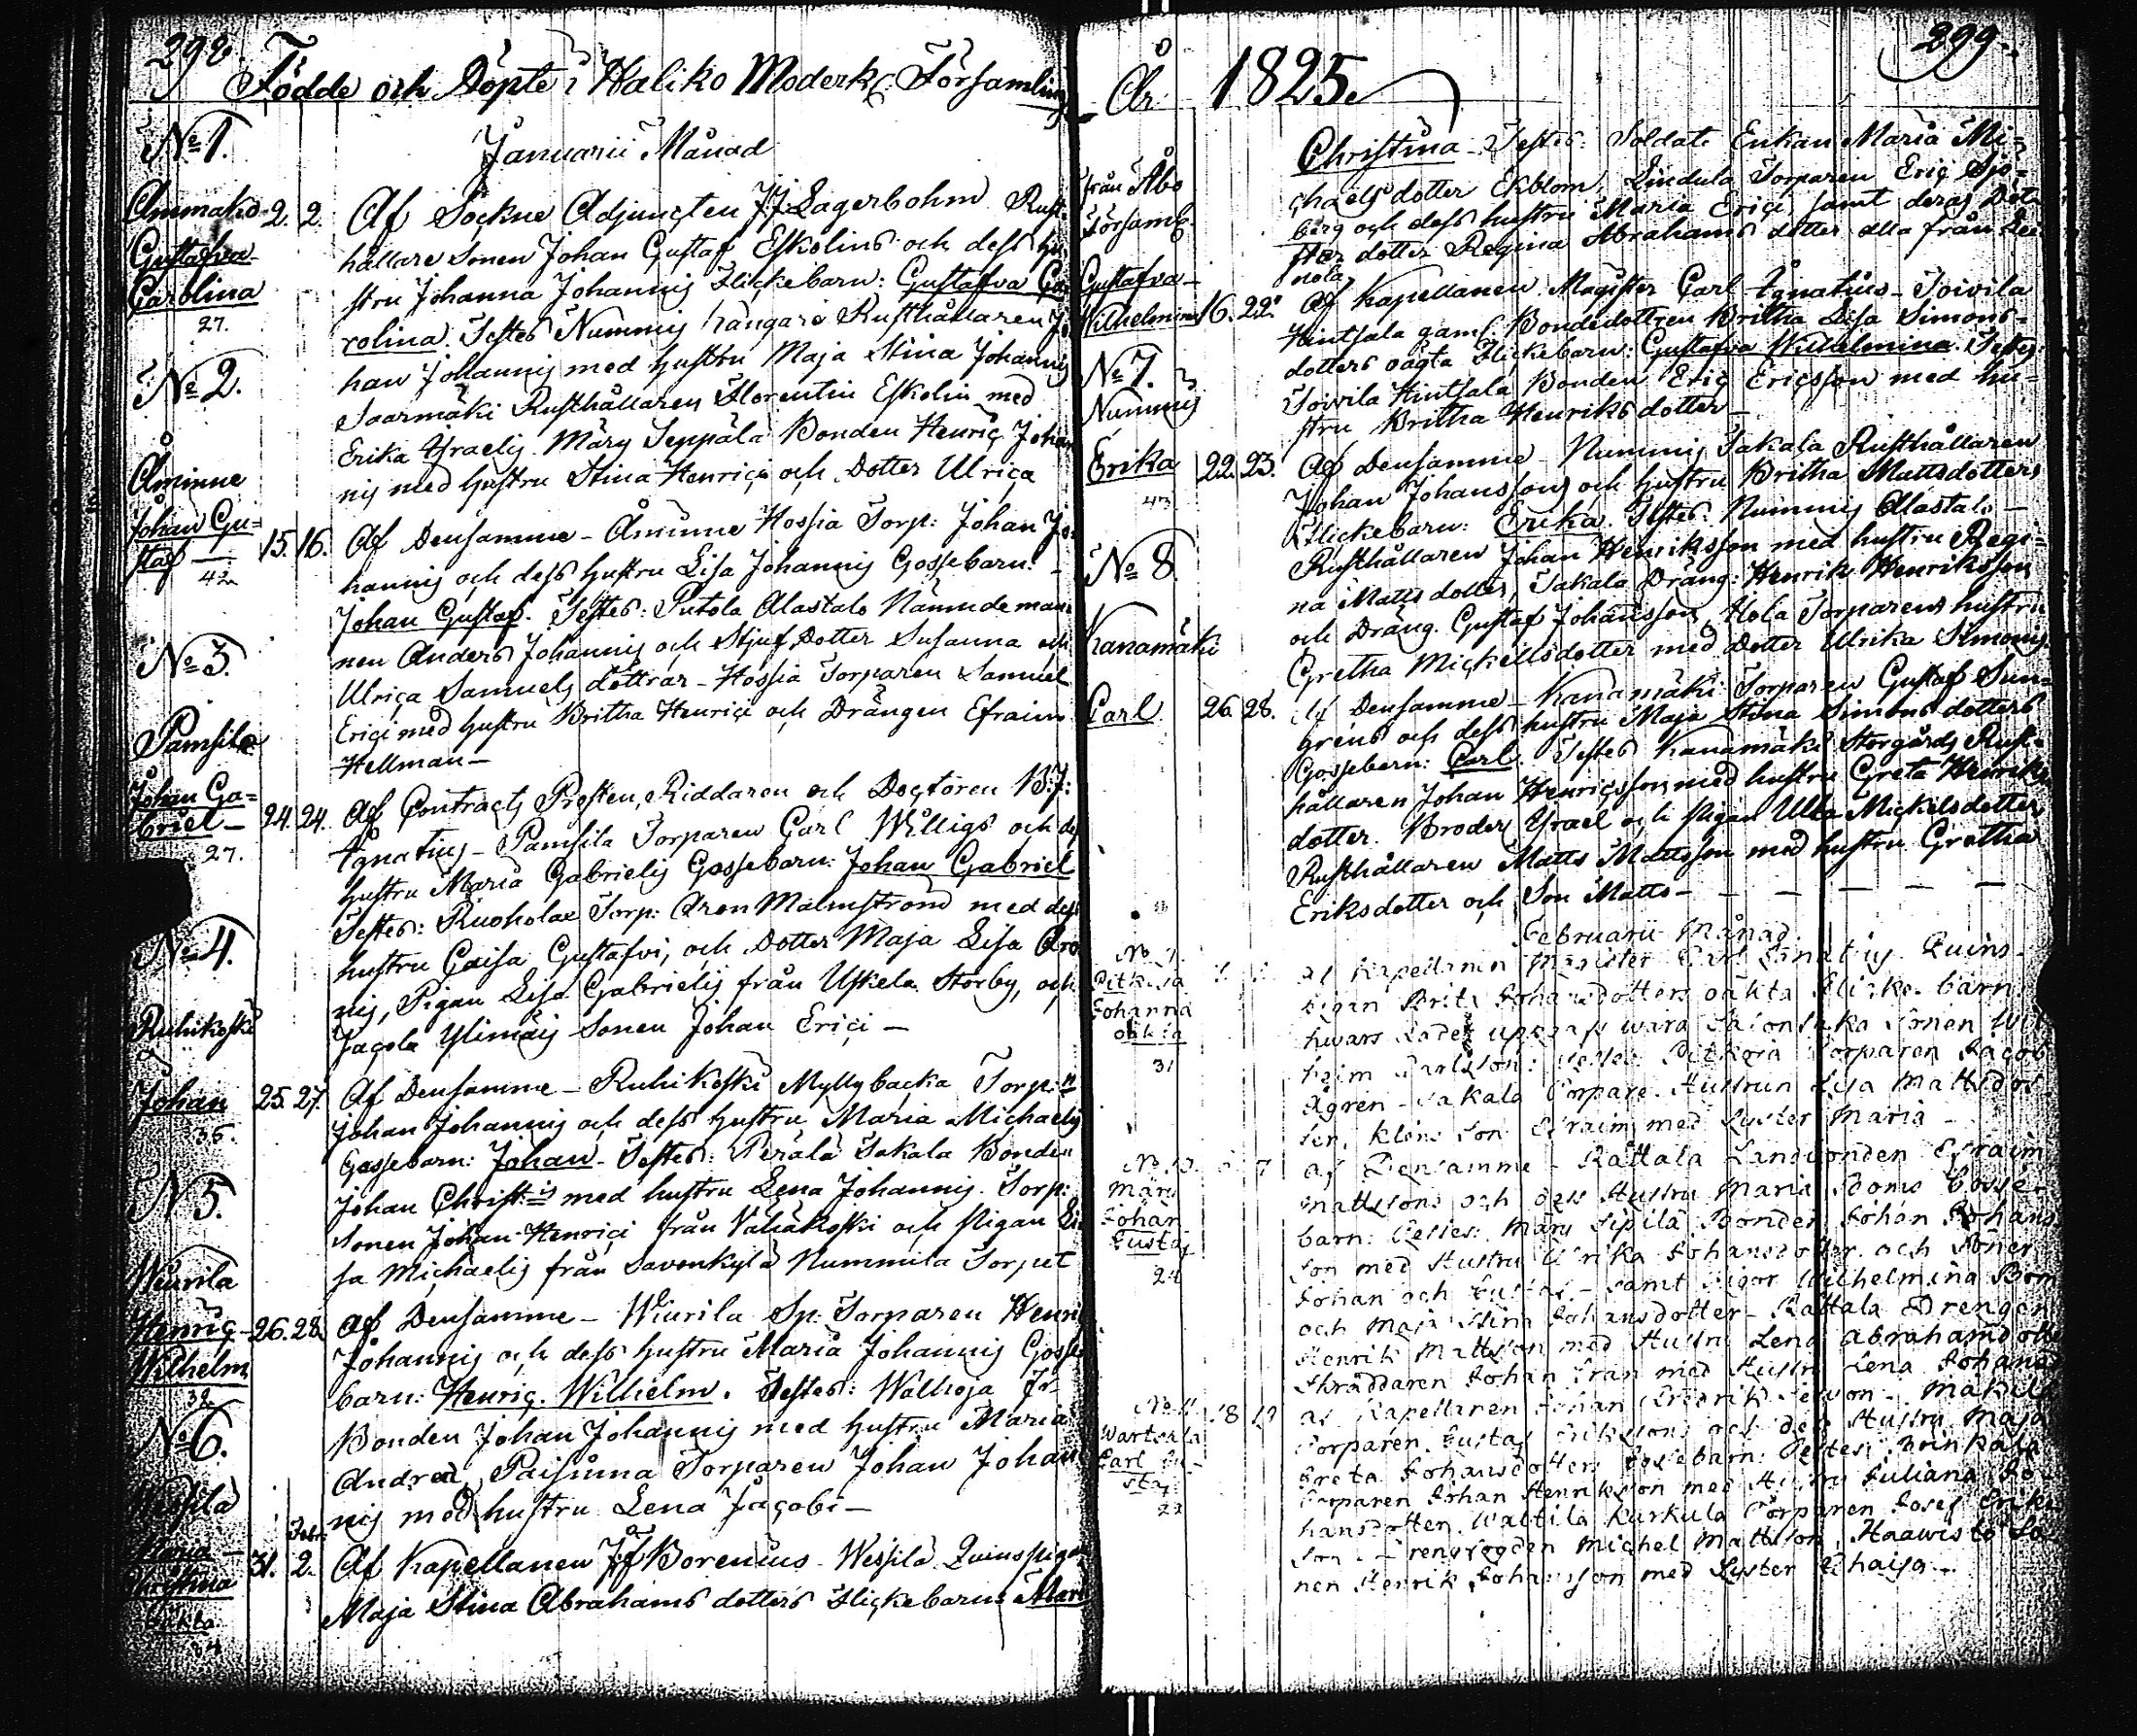 298
Födde och Döpte i Haliko Moderk: Församling
Januarii Månad
No 1.
Ammakō 2. 2.
Gustafva
Carolina
27.
Af Sockne Adjuncten J:J: Lagerbohm Rust-
hållare sonen Johan Gustaf Eskolins och dess hu-
stru Johanna Johannis Flickebarn: Gustafva Ca-
rolina. Testes Nummis Kångare Rusthållaren Jo-
han Johannis med hustru Maja Stina Johannis
Soarmäki Rusthållaren Florentin Eskolin med
Erika Israelis. Märy Seppälä Bonden Henric Johan
nis med hustru Stina Henrici och Dotter Ulrica
No 2.
Åminne
Johan Gu=
staf 15. 16.
42
Af Densamme - Åminne Hossia Torp: Johan Jo-
hannis och dess hustru Lisa Johannis Gossebarn:
Johan Gustaf. Testes: Putola Alastalo Nämndeman-
nen Anders Johannis och Stjuf Dotter Susanna och
Ulrica Samuels döttrar - Hossia Torparen Samuel
Erici med hustru Britha Henrici och Drängen Efraim
Hellman -
No 3.
Pamsila
Johan Ga=
briel - 24. 24.
27.
Af Contracts Prosten, Riddaren och Doctoren B:J:
Ignatius - Pamsila Torparen Carl Willigs och dess
hustru Maria Gabrielis Gossebarn: Johan Gabriel
Testes: Ruohola Torp: Aron Malmström med dess
hustru Caisa Gustafvi, och Dotter Maja Lisa Aro-
nis, Pigan Lisa Gabrielis från Uskela Storby, och
Jacola Ylimäis Sonen Johan Erici -
No 4.
Ruhikoski
Johan 25. 27.
36.
Af Densamme - Ruhikoski Myllybacka Torp:n
Johan Johannis och dess hustru Maria Michaelis
Gossebarn: Johan - Testes: Perälä Sakala Bonden
Johan Christ:is med hustru Lena Johannis. Torp:
Sonen Johan Henrici från Vähäkoski och Pigan Li-
sa Michaelis från Savonkylä Nummila Torpet
N 5.
Wiurila
Henric - 26. 28.
Wilhelm
38
Af Densamme - Wiurila Sp: Torparen Henric
Johannis och dess hustru Maria Johannis Gosse
barn: Henric Wilhelm. Testes: Walhoja
Bonden Johan Johannis med hustru Maria
Andreæ, Paisunna Torparen Johan Johan-
nis med hustru Lena Jacobi -
No 6.
Wessilä
Maria - 31. Febr: 2.
Christina
oäkta
Af Kapellanen J:J: Borenius - Wessilä Quinspigan
Maja Stina Abrahams dotters Flickebarn: Mari
År 1825.
299
från Åbo
Församl:
Christina - Testes: Soldats Enkan Maria Mi=
chaelsdotter Ekblom, Lindula Torparen Eric Sjö=
berg och dess hustru Maria Erici samt deras Dot-
ter dotter Regina Abrahams dotter alla från
nola
Gustafva -
Wilhelmina 16. 22.
Af Kapellanen Magister Carl Ignatius - Toivila
Hintsala gaml: Bondedottren Britha Lisa Simons=
dotters oägta Flickebarn: Gustafva Wilhelmina. Testes
Toivila Hintsala Bonden Eric Ericsson med hu-
stru Britha Henriks dotter -
No 7.
Nummis
Erika 22. 23.
43
Af Densamme - Nummis Sakala Rusthållaren
Johan Johanssons och hustru Britha Mattsdotters
Flickebarn: Erika. Testes: Nummis Alastalo -
Rusthållaren Johan Henriksson med hustru Regi-
na Matts dotter, Sakala Dräng: Henrik Henriksson
och Dräng. Gustaf Johansson, Hola Torparens hustru
Gretha Mickelsdotter med Dotter Ulrika Simonis
No 8.
Kanamäki
Carl 26. 28.
Af Densamme - Kanamäki Torparen Gustaf Sun-
grens och dess hustru Maja Stina Simons dotters
Gossebarn: Carl. Testes Kanamäki Storgårds Rust-
hållaren Johan Henricsson med hustru Greta Henriks
dotter. Broder Israel och Pigan Ulla Mickelsdotter
Rusthållaren Matts Mattsson med hustru Gretha
Eriksdotter och Son Matts -
Februarii Månad
Johanna
31
af Kapellanen Magister Carl Ignatius. Quins-
pigan Brita Johansdotters oäkta Flicke barn
hwars Fader uppgafs wara Salon Sonen Wil-
Torparen Jacob
Ågren - Sakala Torpare Hustrun Lisa Mattsdot-
ter, Son Efraim med Syster Maria -
No 10. 7
Märy
Johan
Gustaf
24
af Densamme - Rattala Landbonden Efraim
Mattssons och dess Hustru Maria Gosse-
barn: Testes: Märy Sipilä Bonden Johan Johans-
son med Hustru Ulrika Johansdotter och Söner
Johan och Gustaf - samt Pigor Wilhelmina
och Maja Stina Johansdotter - Rattala Drengen
Henrik Mattsson med Hustru Lena Abrahamsdotter
Skräddaren Johan med Hustru Lena Johansd
No 11. 18 19
Wartsala
Carl Gu-
staf
22
af Kapellanen Johan Fredrik - Mäkilä
Torparen Gustaf Erikssons och dess Hustru Maja
Greta Johansdotters Gossebarn: Testes:
Torparen Johan Henriksson med Hustru Juliana Jo-
hansdotter. Walttila Kurkula Torparen Josef Eriks-
son Michel Mattsson, Haawisto So-
nen Henrik Johansson med Syster Chaisa -